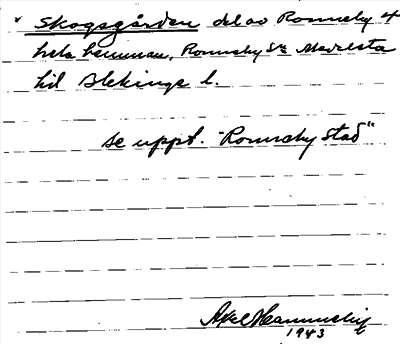 v Skogsgården del av Ronneby 4
hela hemman, Ronneby Sn Medelsta
hd Blekinge l.
se uppt. "Ronneby stad"
Axel
1943